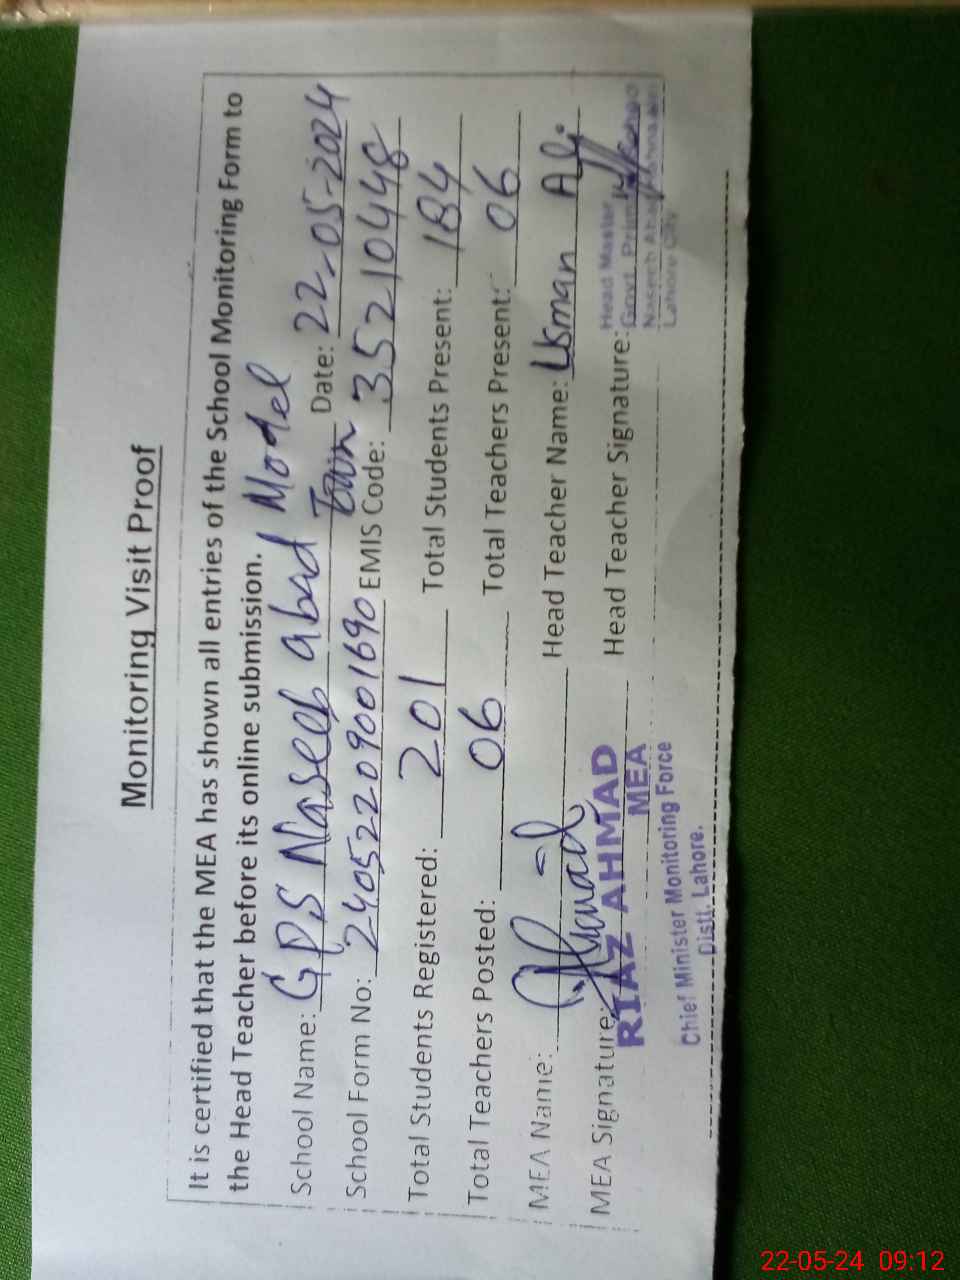 Monitoring Visit Proof
It is certified that the MEA has shown all entries of the School Monitoring Form to
the Head Teacher before its online submission.
School Name: GPS Naseeb abad Model Town Date: 22-05-2024
School Form No: 24052209001690 EMIS Code: 35210448
Total Students Registered: 201 Total Students Present: 184
Total Teachers Posted: 06 Total Teachers Present: 06
MEA Name: Head Teacher Name: Usman Ali
MEA Signature: Head Teacher Signature:
RIAZ AHMAD
MEA
Chief Minister Monitoring Force
Distt. Lahore.
Head Master
Govt. Prim
Naseeb Abad
Lahore City
22-05-24 09:12